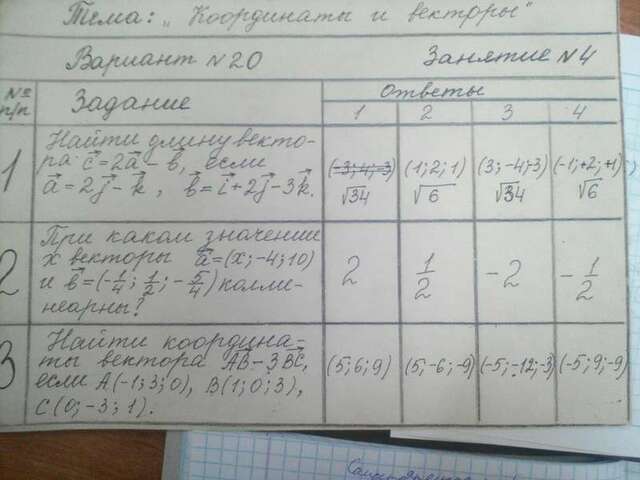 Тема: „Координаты и векторы"
Вариант №20 Занятие №4
№ п/п Задание Ответы
1 2 3 4
1 Найти длину векто-
ра c⃗=2a⃗-b⃗, если
a⃗=2j⃗-k⃗, b⃗=i⃗+2j⃗-3k⃗.
(-3;4;-3) (1;2;1) (3;-4;-3) (-1;+2;+1)
√34 √6 √34 √6
2 При каком значении
x векторы a⃗=(x;-4;10)
и b⃗=(-1/4; 1/2; -5/4) колли-
неарны?
2 1/2 -2 -1/2
3 Найти координа-
ты вектора AB-3BC,
если A(-1;3;0), B(1;0;3),
C(0;-3;1).
(5;6;9) (5;-6;-9) (-5;-12;-3) (-5;9;-9)